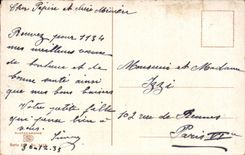 Cher Pépère et chère Mémère
Recevez pour 1934
mes meilleurs vœux
de bonheur et de
bonne santé ainsi
que mes bons baisers
Votre petite fille
qui pense bien à
vous.
30-12-33
Monsieur et Madame
Izzi
102 rue de Rennes
Paris VI